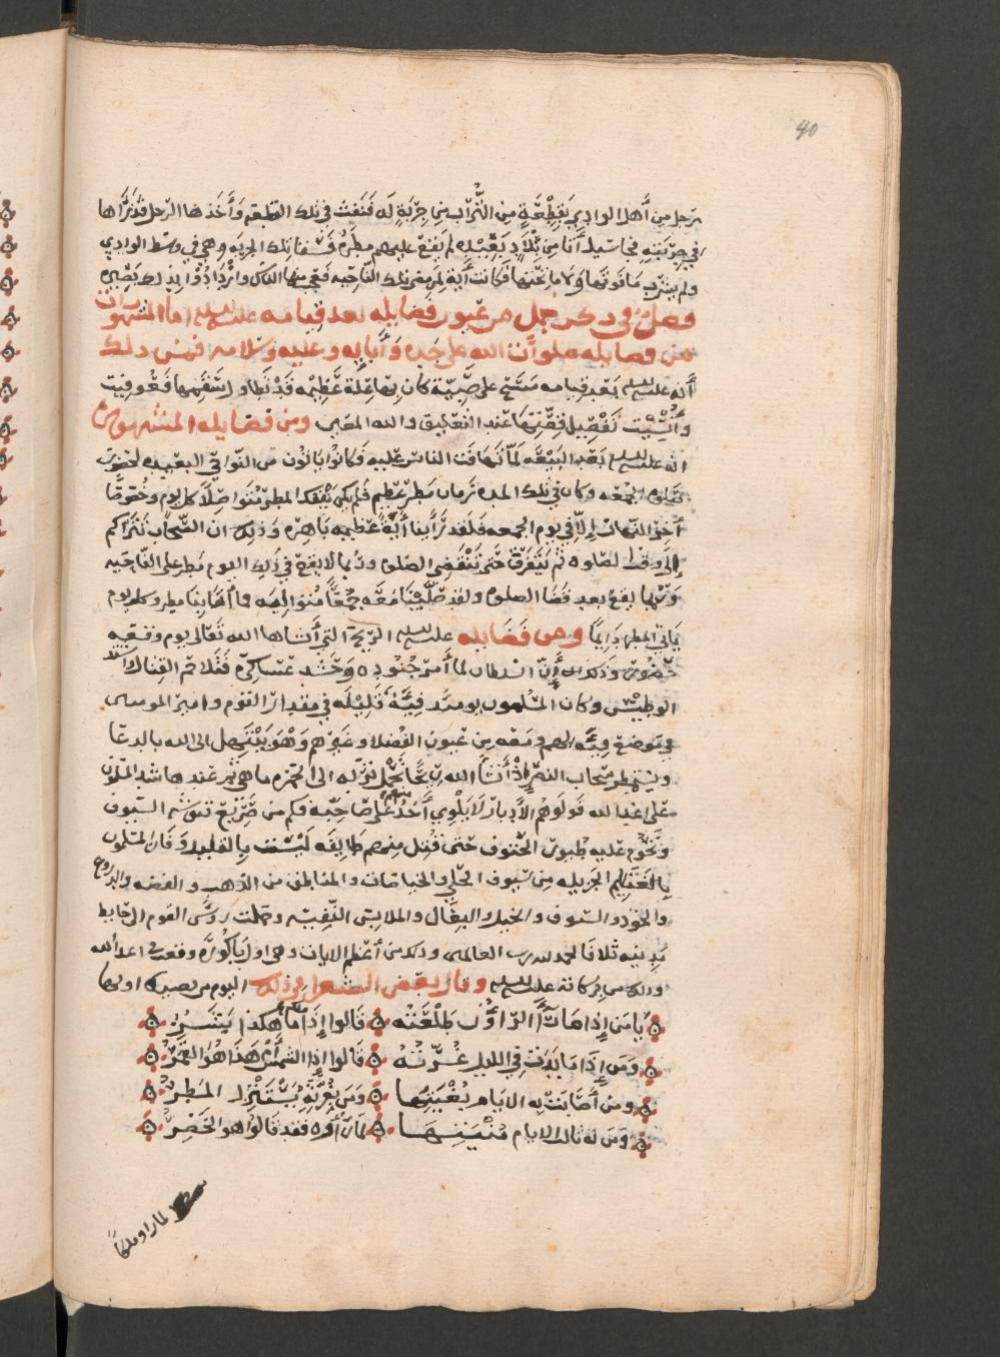 40
رجل من أهل الوادي بقطعة من التراب من جربة له فنفث في تلك القطعة وأخذها الرجل فذرّاها
في جربته فجا سيل أتا من بلاد بعيده لم يقع عليهم مطر فسقا تلك الجربه وهي في وسط الوادي
ولم يشرب ما فوقها ولا ما تحتها فكانت آية لمن في تلك الناحيه فعجب منها الناس وازدادوا بذلك بصيره
فصل في ذكر جمل من عيون فضايله بعد قيامه عليه السلم اما المشهورات
من فضايله صلوات الله على جده وآبايه وعليه وسلامه فمن ذلك
أنه عليه السلم بعد قيامه مسح على صبية كان بها علة عظيمه قد تطاول سقمها فعوفيت
وأنسيت تفصيل قصتها عند التعليق والله المعين ومن فضايله المشهوره
انه عليه السلم بعد البيعه لما تهافت الناس عليه وكانوا ياتون من النواحي البعيده لحضور
صلوة الجمعه وكان في تلك المده زمان مطر عظيم فلم يكن يفقد المطر متواصلا كل يوم وخصوصا
آخر النهار إلا في يوم الجمعه فلقد رأينا آية عظيمه باهره وذلك ان السحاب تتراكم
إلى وقت الصلوه ثم يتفرق حتى تنقضي الصلوه وربما لا يقع في ذلك اليوم مطر على الناحيه
وربما يقع بعد قضا الصلوه ولقد صلينا معه جمعا متواليه فما أصابنا مطر وكل يوم
ياتي المطر دايما ومن فضايله عليه السلم الريح التي أنشاها الله تعالى يوم وقعة
حضور وذلك أن السلطان لما أمر جنوده وحشد عساكره فتلاحم القتال واشتد
الوطيس وكان المسلمون يومئذ فية قليله في مقدار القوم وامير المومنين
في موضع فية لهم ومعه من عيون الفضلا وغيرهم وهو يبتهل الى الله بالدعا
ويستمطر سحاب النصر إذ أنشأ الله ريحا لم تزله الى الحمره ما هي ثم عندها شد المسلمون
على اعدا الله فولوهم الأدبار لا يلوي أحد منهم على صاحبه فكم من صريع تنوشه السيوف
وتحوم عليه طيور الحتوف حتى قتل منهم طايفه ليست بالقليله وفاز المسلمون
بالغنايم الجزيله من سيوف الحلي والخياصات والمناطق من الذهب والفضه والدروع
والخوذ والسيوف والخيل والبغال والملابس النفيسه وحملت رؤس القوم الى حايط
مدينه ثلا فالحمد لله رب العالمين وذلك من أعظم الايات وهي اول باكورة وقعت في اعدا الله
وذلك من بركاته عليه السلم وقال بعض الشعرا في ذلك اليوم من قصيده اولها
يا من إذا ما رآ الراؤن طلعته قالوا إذا ما هكذا بشر
ومن إذا ما بدت في الليل غرته قالوا إذا الشمس هذا هو القمر
ومن أصابت به الايام بغيتها ومن بغرته يستنزل المطر
ومن له نالت الايام منيتها لما رأوه فقد قالوا هو الخضر
لما راو ملكا